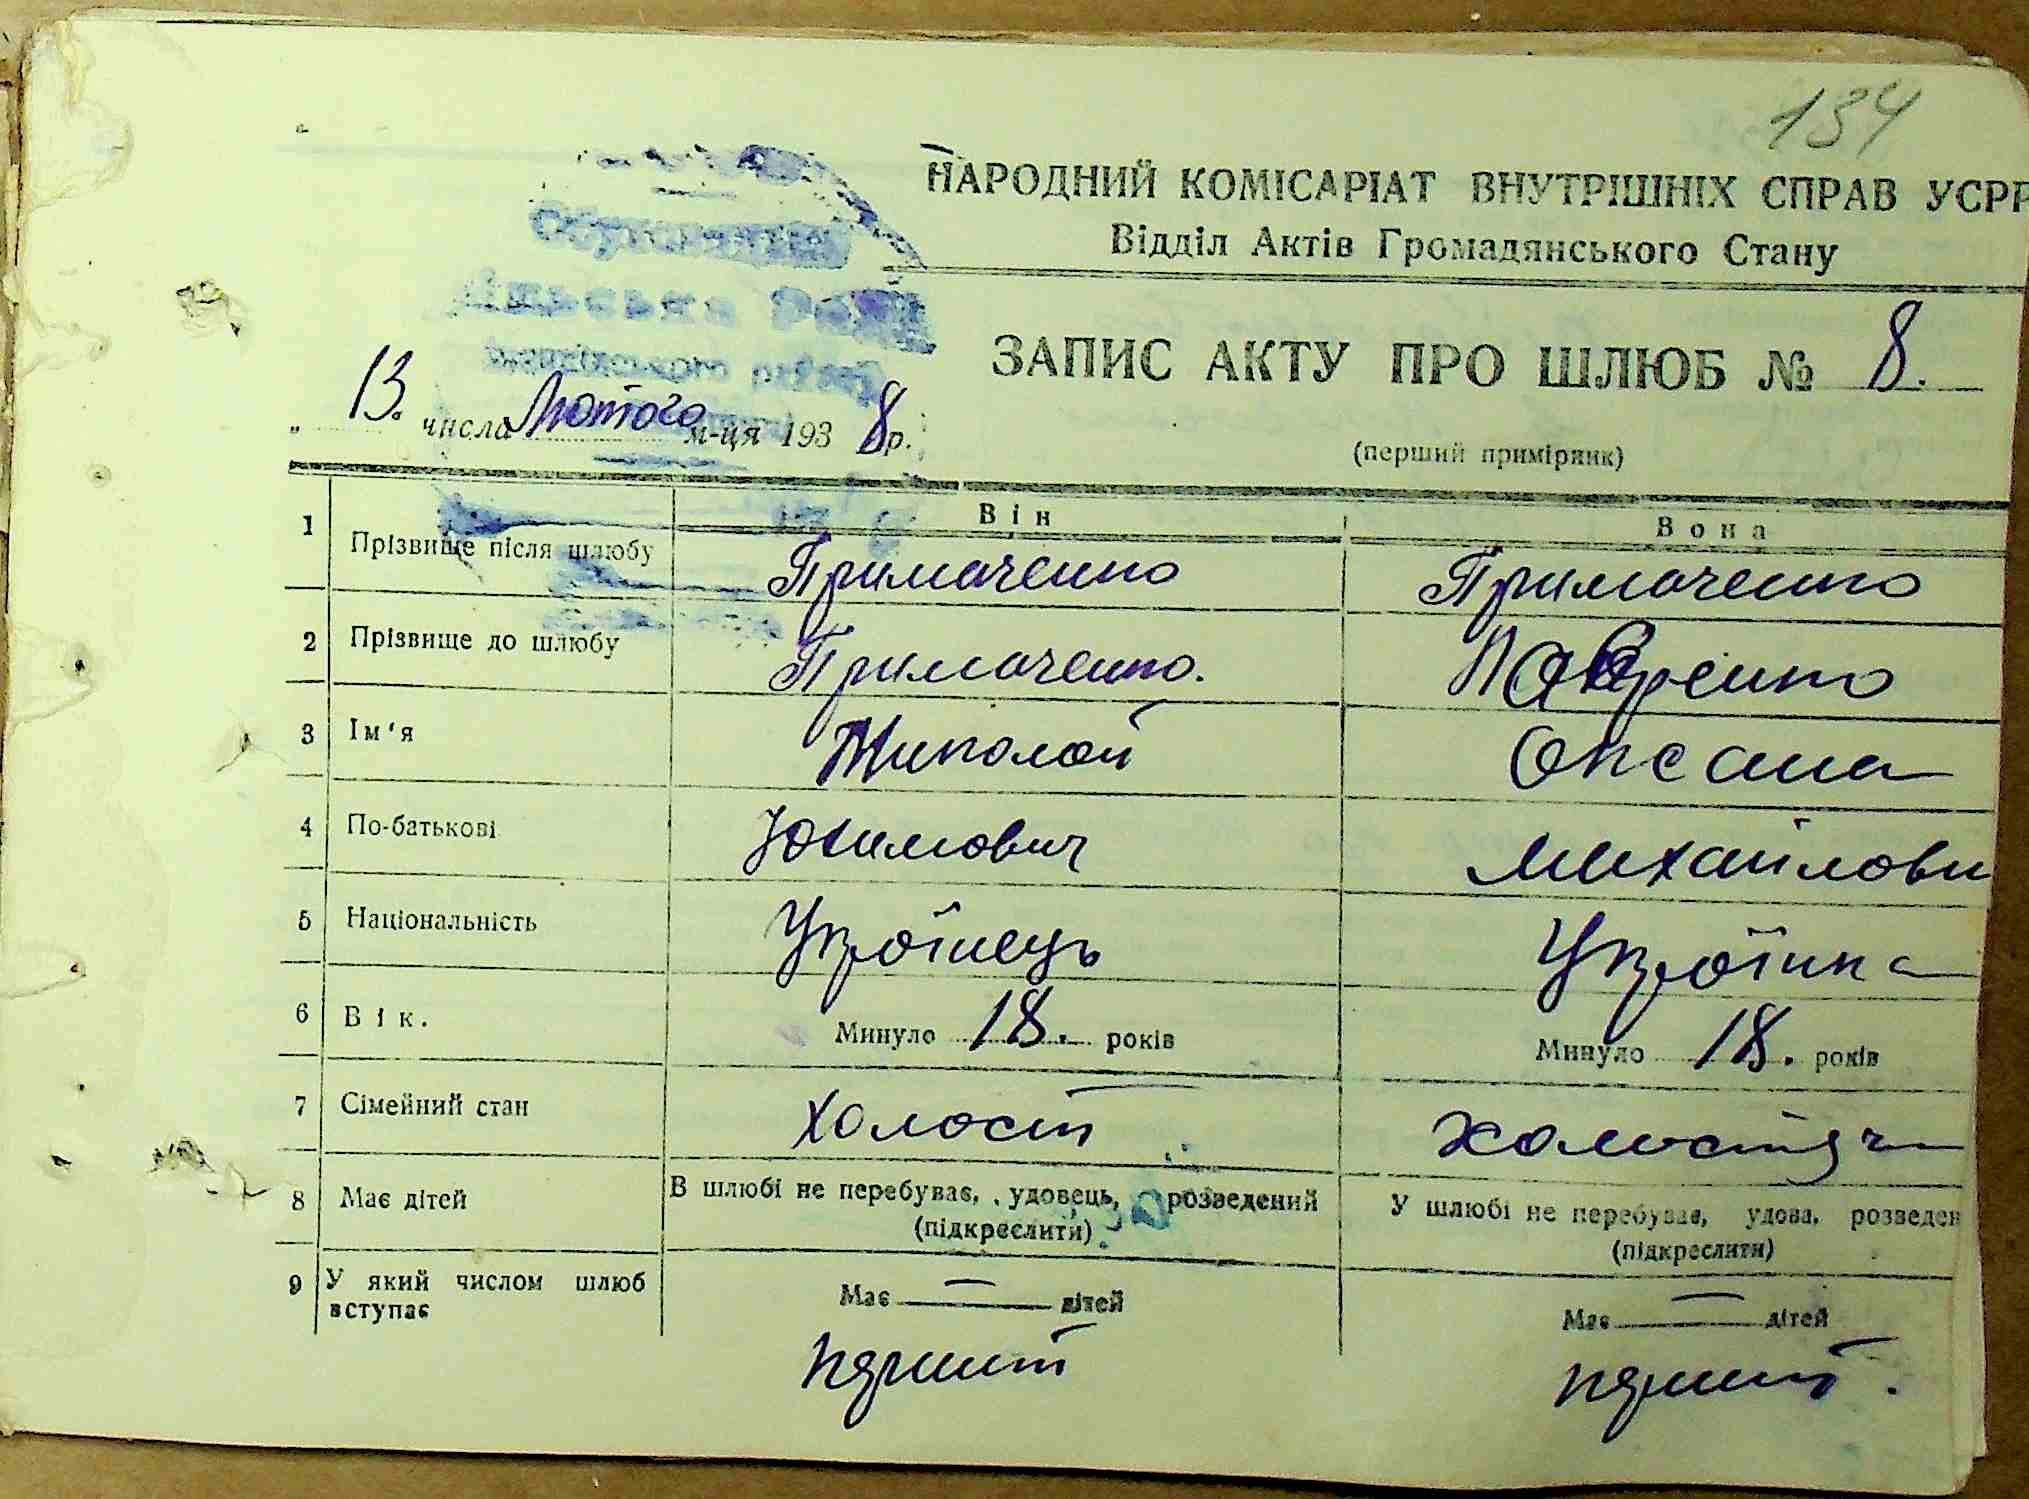 134
НАРОДНИЙ КОМІСАРІАТ ВНУТРІШНІХ СПРАВ УСРР
Відділ Актів Громадянського Стану
ЗАПИС АКТУ ПРО ШЛЮБ № 8.
„ 13. числа Лютого м-ця 1938р.
(перший примірник)
Він Вона
1 Прізвище після шлюбу Примаченко Примаченко
2 Прізвище до шлюбу Примаченко. Лавренко
3 Ім'я Миколай Оксана
4 По-батькові Юхимович Михайлови
5 Національність Українець Українка
6 Вік. Минуло 18. років Минуло 18. років
7 Сімейний стан Холостий
8 Має дітей В шлюбі не перебуває, удовець, розведений У шлюбі не перебуває, удова, розведен
(підкреслити) (підкреслити)
9 У який числом шлюб вступає Має — дітей Має — дітей